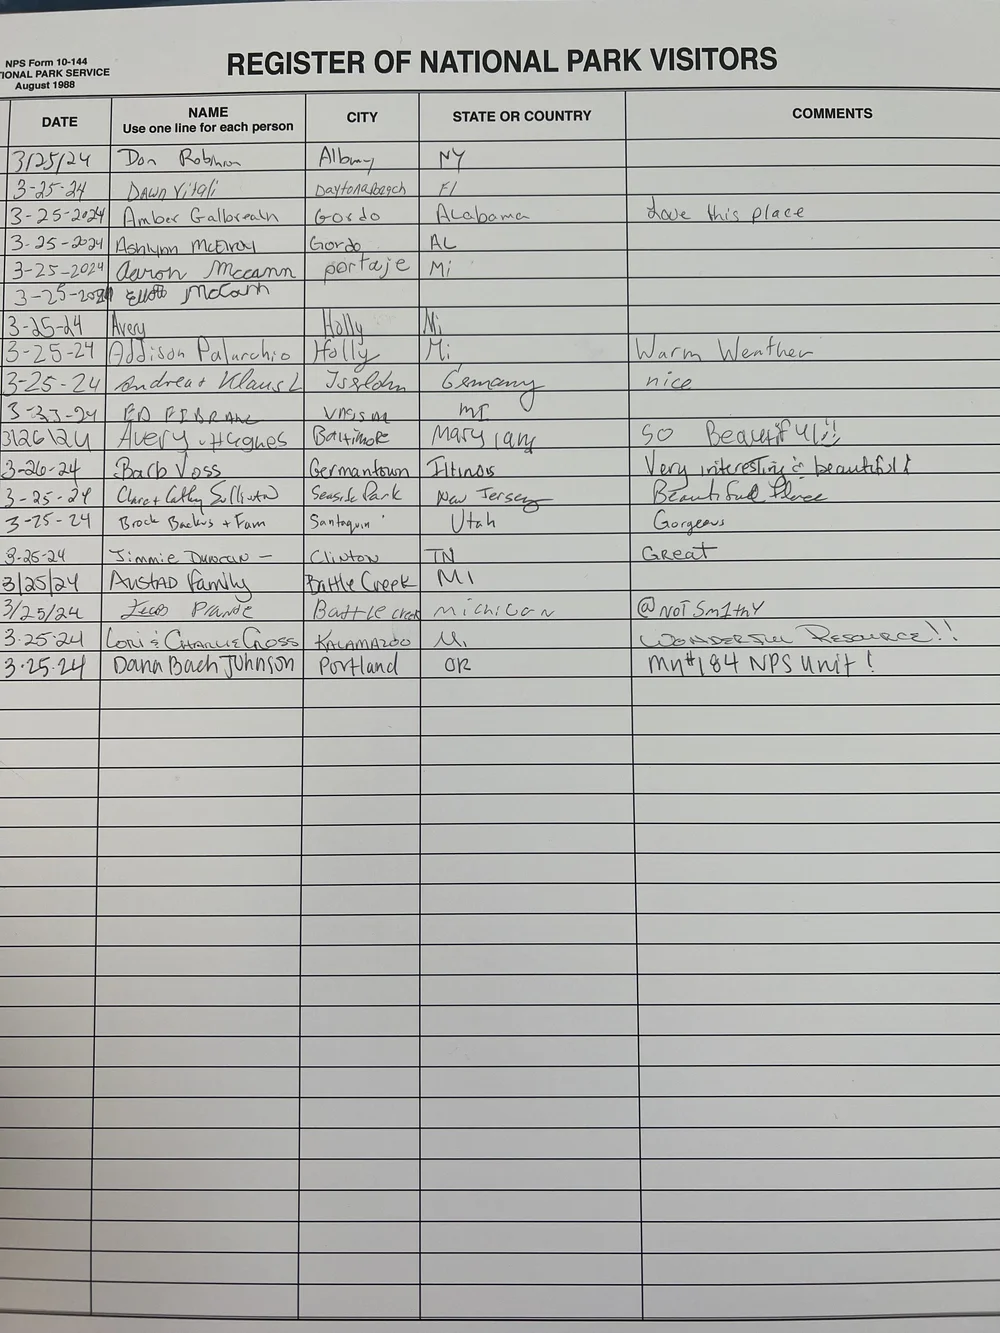 NPS Form 10-144
IONAL PARK SERVICE
August 1988
REGISTER OF NATIONAL PARK VISITORS
DATE NAME CITY STATE OR COUNTRY COMMENTS
Use one line for each person
3/25/24 Don Robinson Albany NY
3-25-24 Dawn Vitali Daytona Beach Fl
3-25-2024 Amber Galbreath Gordo Alabama Love this place
3-25-2024 Ashlynn McElroy Gordo AL
3-25-2024 Aaron Mccann portaje Mi
3-25-2024 Elliott McCann
3-25-24 Avery Holly Mi
3-25-24 Addison Palarchio Holly Mi Warm Weather
3-25-24 Andrea + Klaus L Germany nice
ED MI
3/26/24 Avery Hugnes Baltimore Maryland SO Beautiful!!
3-26-24 Barb Voss Germantown Illinois Very interesting & beautiful!
3-25-24 Clare + Cathy Sullivan Seaside Park New Jersey Beautiful Place
3-25-24 Brock Backus + Fam Santaquin Utah Gorgeous
3-25-24 Jimmie Duncan - Clinton TN GREAT
3/25/24 Austad Family Battle Creek MI
3/25/24 Battle creek michigan @NOTSm1thY
3-25-24 Lori & Charlie Cross Kalamazoo Mi Wonderful Resource!!
3-25-24 Dana Bach Johnson Portland OR my #184 NPS unit!